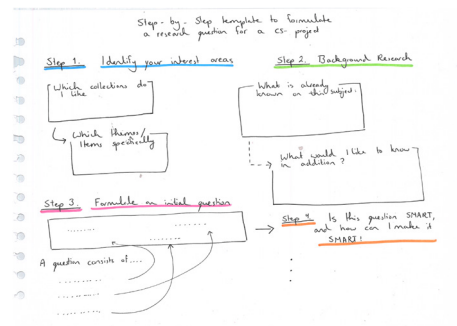 Step-by-Step template to formulate
a research question for a CS-project
Step 1. Identify your interest areas
Which collections do
I like
Which themes/
Items specifically
Step 2. Background Research
What is already
known on this subject.
What would I like to know
in addition?
Step 3. Formulate an initial question
.........
.........
.........
A question consists of....
.........
.........
.........
Step 4. Is this question SMART,
and how can I make it
SMART!